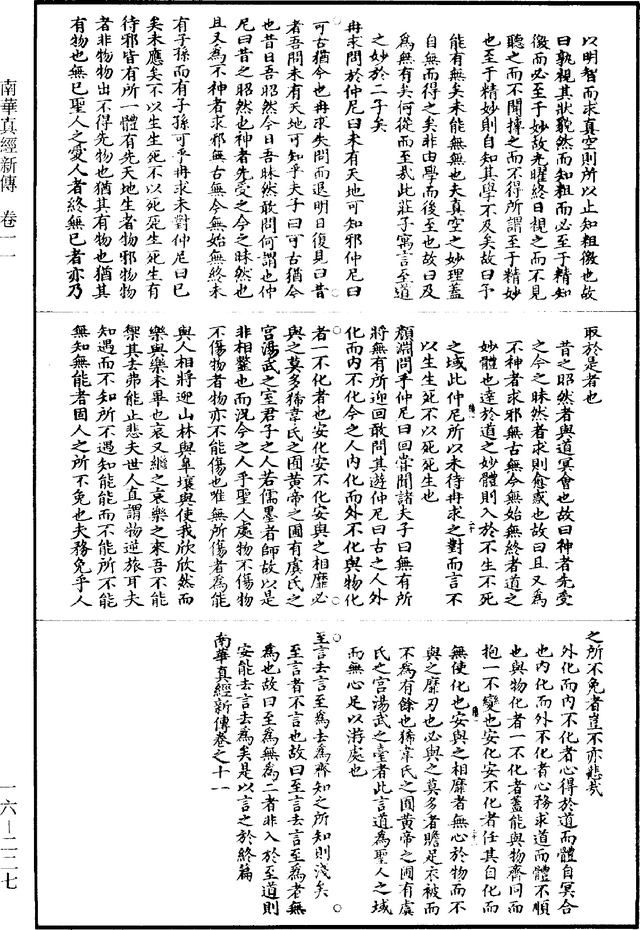 南華真經新傳　卷一一
一六—二二七
以明智而求真空則所以止知粗微也故
曰孰視其狀貌然而知粗而必至于精知
復而必至于妙故光曜終日視之而不見
聽之而不聞摶之而不得所謂至于精妙
也至于精妙則自知其學不及矣故曰予
能有無矣未能無無也夫真空之妙理蓋
自無而得之矣非由學而後至也故曰及
為無有矣何從而至哉此莊子寓言至道
之妙於二子矣
冉求問於仲尼曰未有天地可知邪仲尼曰
可古猶今也冉求失問而退明日復見曰昔
者吾問未有天地可知乎夫子曰可古猶今
也昔日吾昭然今日吾昧然敢問何謂也仲
尼曰昔之昭然也神者先受之今之昧然也
且又為不神者求邪無古無今無始無終未
有子孫而有子孫可乎冉求未對仲尼曰已
矣未應矣不以生生死不以死死生死生有
待邪皆有所一體有先天地生者物邪物物
者非物物出不得先物也猶其有物也猶其
有物也無已聖人之愛人者終無已者亦乃
取於是者也
昔之昭然者與道冥會也故曰神者先受
之今之昧然者求則愈惑也故曰且又為
不神者求邪無古無今無始無終者道之
妙體也達於道之妙體則入於不生不死
之域此仲尼所以未待冉求之對而言不
以生生死不以死死生也
顏淵問乎仲尼曰回嘗聞諸夫子曰無有所
將無有所迎回敢問其遊仲尼曰古之人外
化而內不化今之人內化而外不化與物化
者一不化者也安化安不化安與之相靡必
與之莫多狶韋氏之囿黃帝之圃有虞氏之
宮湯武之室君子之人若儒墨者師故以是
非相𩐎也而況今之人乎聖人處物不傷物
不傷物者物亦不能傷也唯無所傷者為能
與人相將迎山林與皐壤與使我欣欣然而
樂與樂未畢也哀又繼之哀樂之來吾不能
禦其去弗能止悲夫世人直謂物逆旅耳夫
知遇而不知所不遇知能能而不能所不能
無知無能者固人之所不免也夫務免乎人
之所不免者豈不亦悲哉
外化而內不化者心得於道而體自冥合
也內化而外不化者心務求道而體不順
也與物化者一不化者蓋能與物齊同而
抱一不變也安化安不化者任其自化而
無使化也安與之相靡者無心於物而不
與之靡刃也必與之莫多者贍足衣被而
不為有餘也狶韋氏之囿黃帝之圃有虞
氏之宮湯武之臺者此言道為聖人之域
而無心足以游處也
至言去言至為去為齊知之所知則淺矣
至言者不言也故曰至言去言至為者無
為也故曰至為無為二者非入於至道則
安能去言去為矣是以言之於終篇
南華真經新傳卷之十一